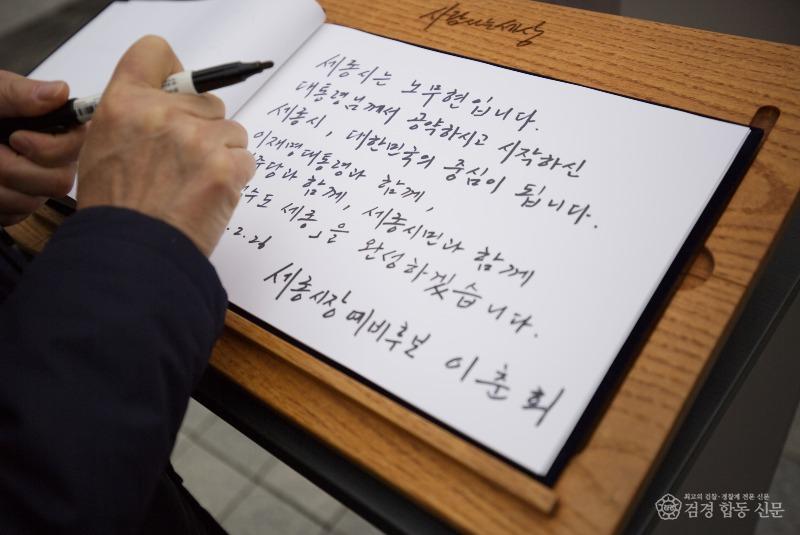 사람사는세상
세종시는 노무현입니다.
대통령님께서 공약하시고 시작하신
세종시, 대한민국의 중심이 됩니다.
이재명대통령과 함께,
함께, 세종시민과 함께
세종」을 완성하겠습니다.
.2.26
세종시장예비후보 이춘희
최고의 검찰·경찰계 전문 신문
검경 합동 신문